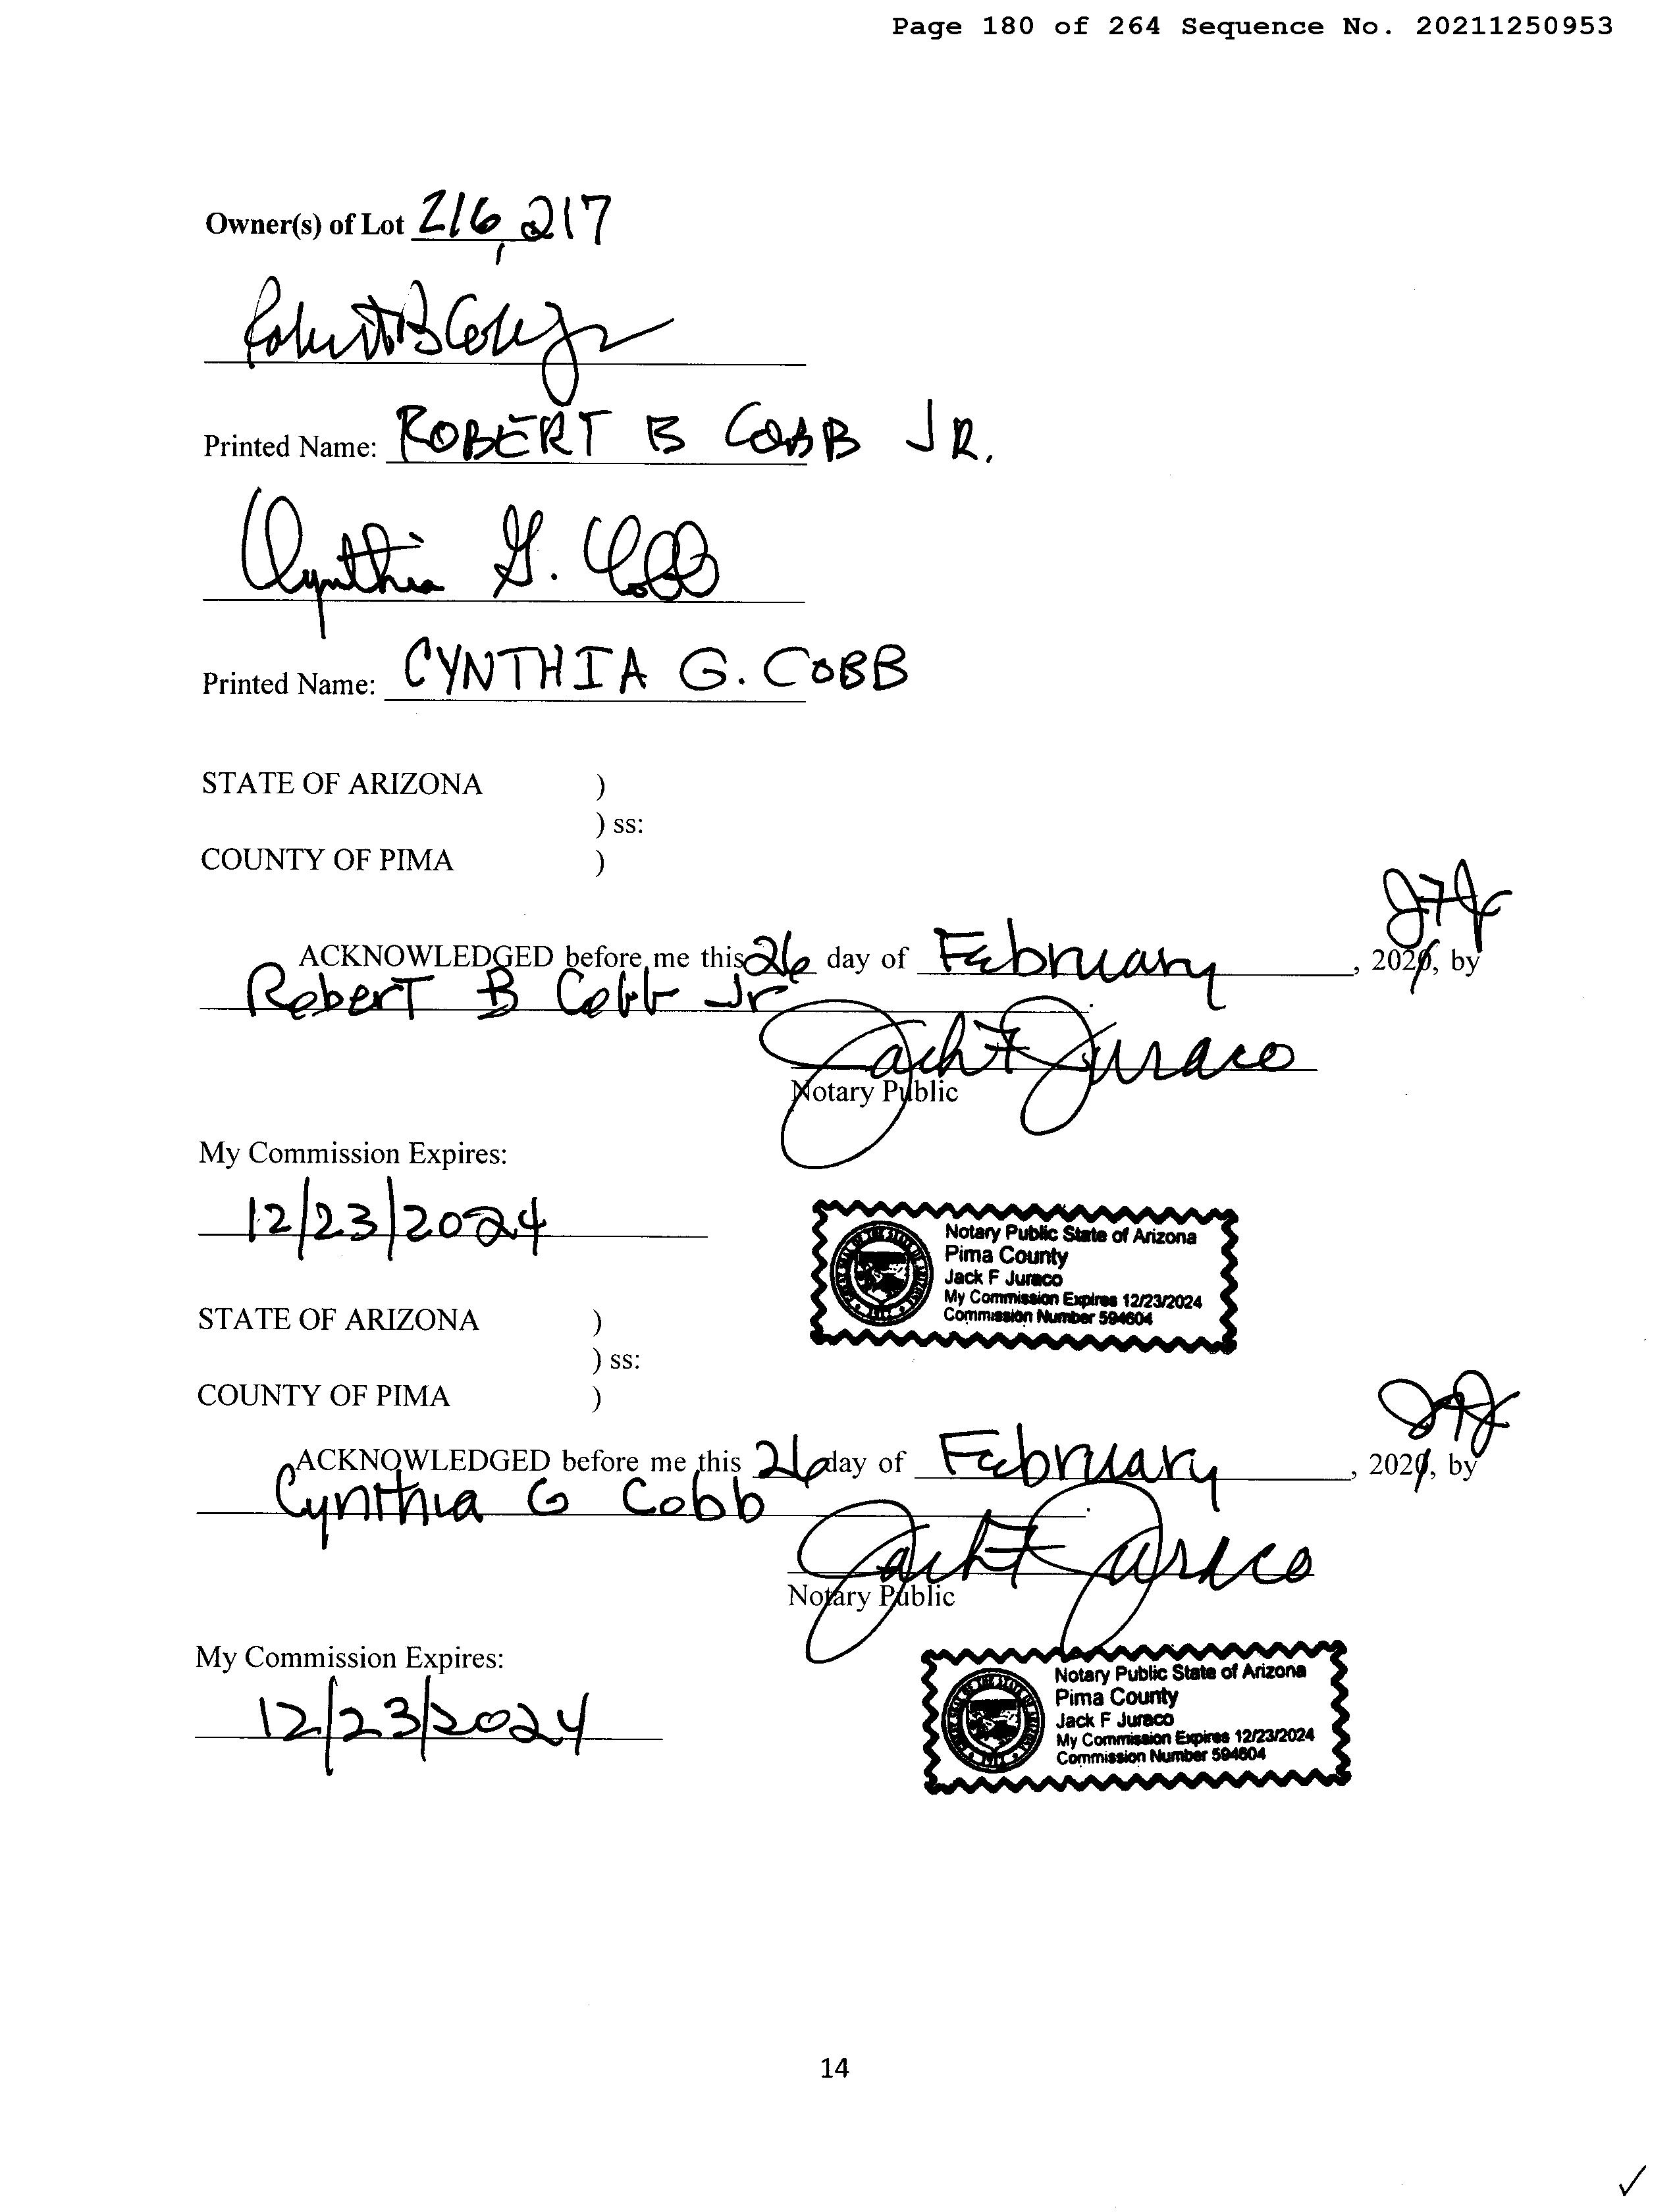 Page 180 of 264 Sequence No. 20211250953
Owner(s) of Lot 216, 217
Robert B Cobb Jr
Printed Name: ROBERT B COBB JR.
Cynthia G. Cobb
Printed Name: CYNTHIA G. COBB
STATE OF ARIZONA )
) ss:
COUNTY OF PIMA )
JFJ
ACKNOWLEDGED before me this 26 day of February, 2021, by
Robert B Cobb Jr.
Jack F Juraco
Notary Public
My Commission Expires:
12/23/2024
Notary Public State of Arizona
Pima County
Jack F Juraco
My Commission Expires 12/23/2024
Commission Number 594604
STATE OF ARIZONA )
) ss:
COUNTY OF PIMA )
JFJ
ACKNOWLEDGED before me this 26 day of February, 2021, by
Cynthia G Cobb.
Jack F Juraco
Notary Public
My Commission Expires:
12/23/2024
Notary Public State of Arizona
Pima County
Jack F Juraco
My Commission Expires 12/23/2024
Commission Number 594604
14